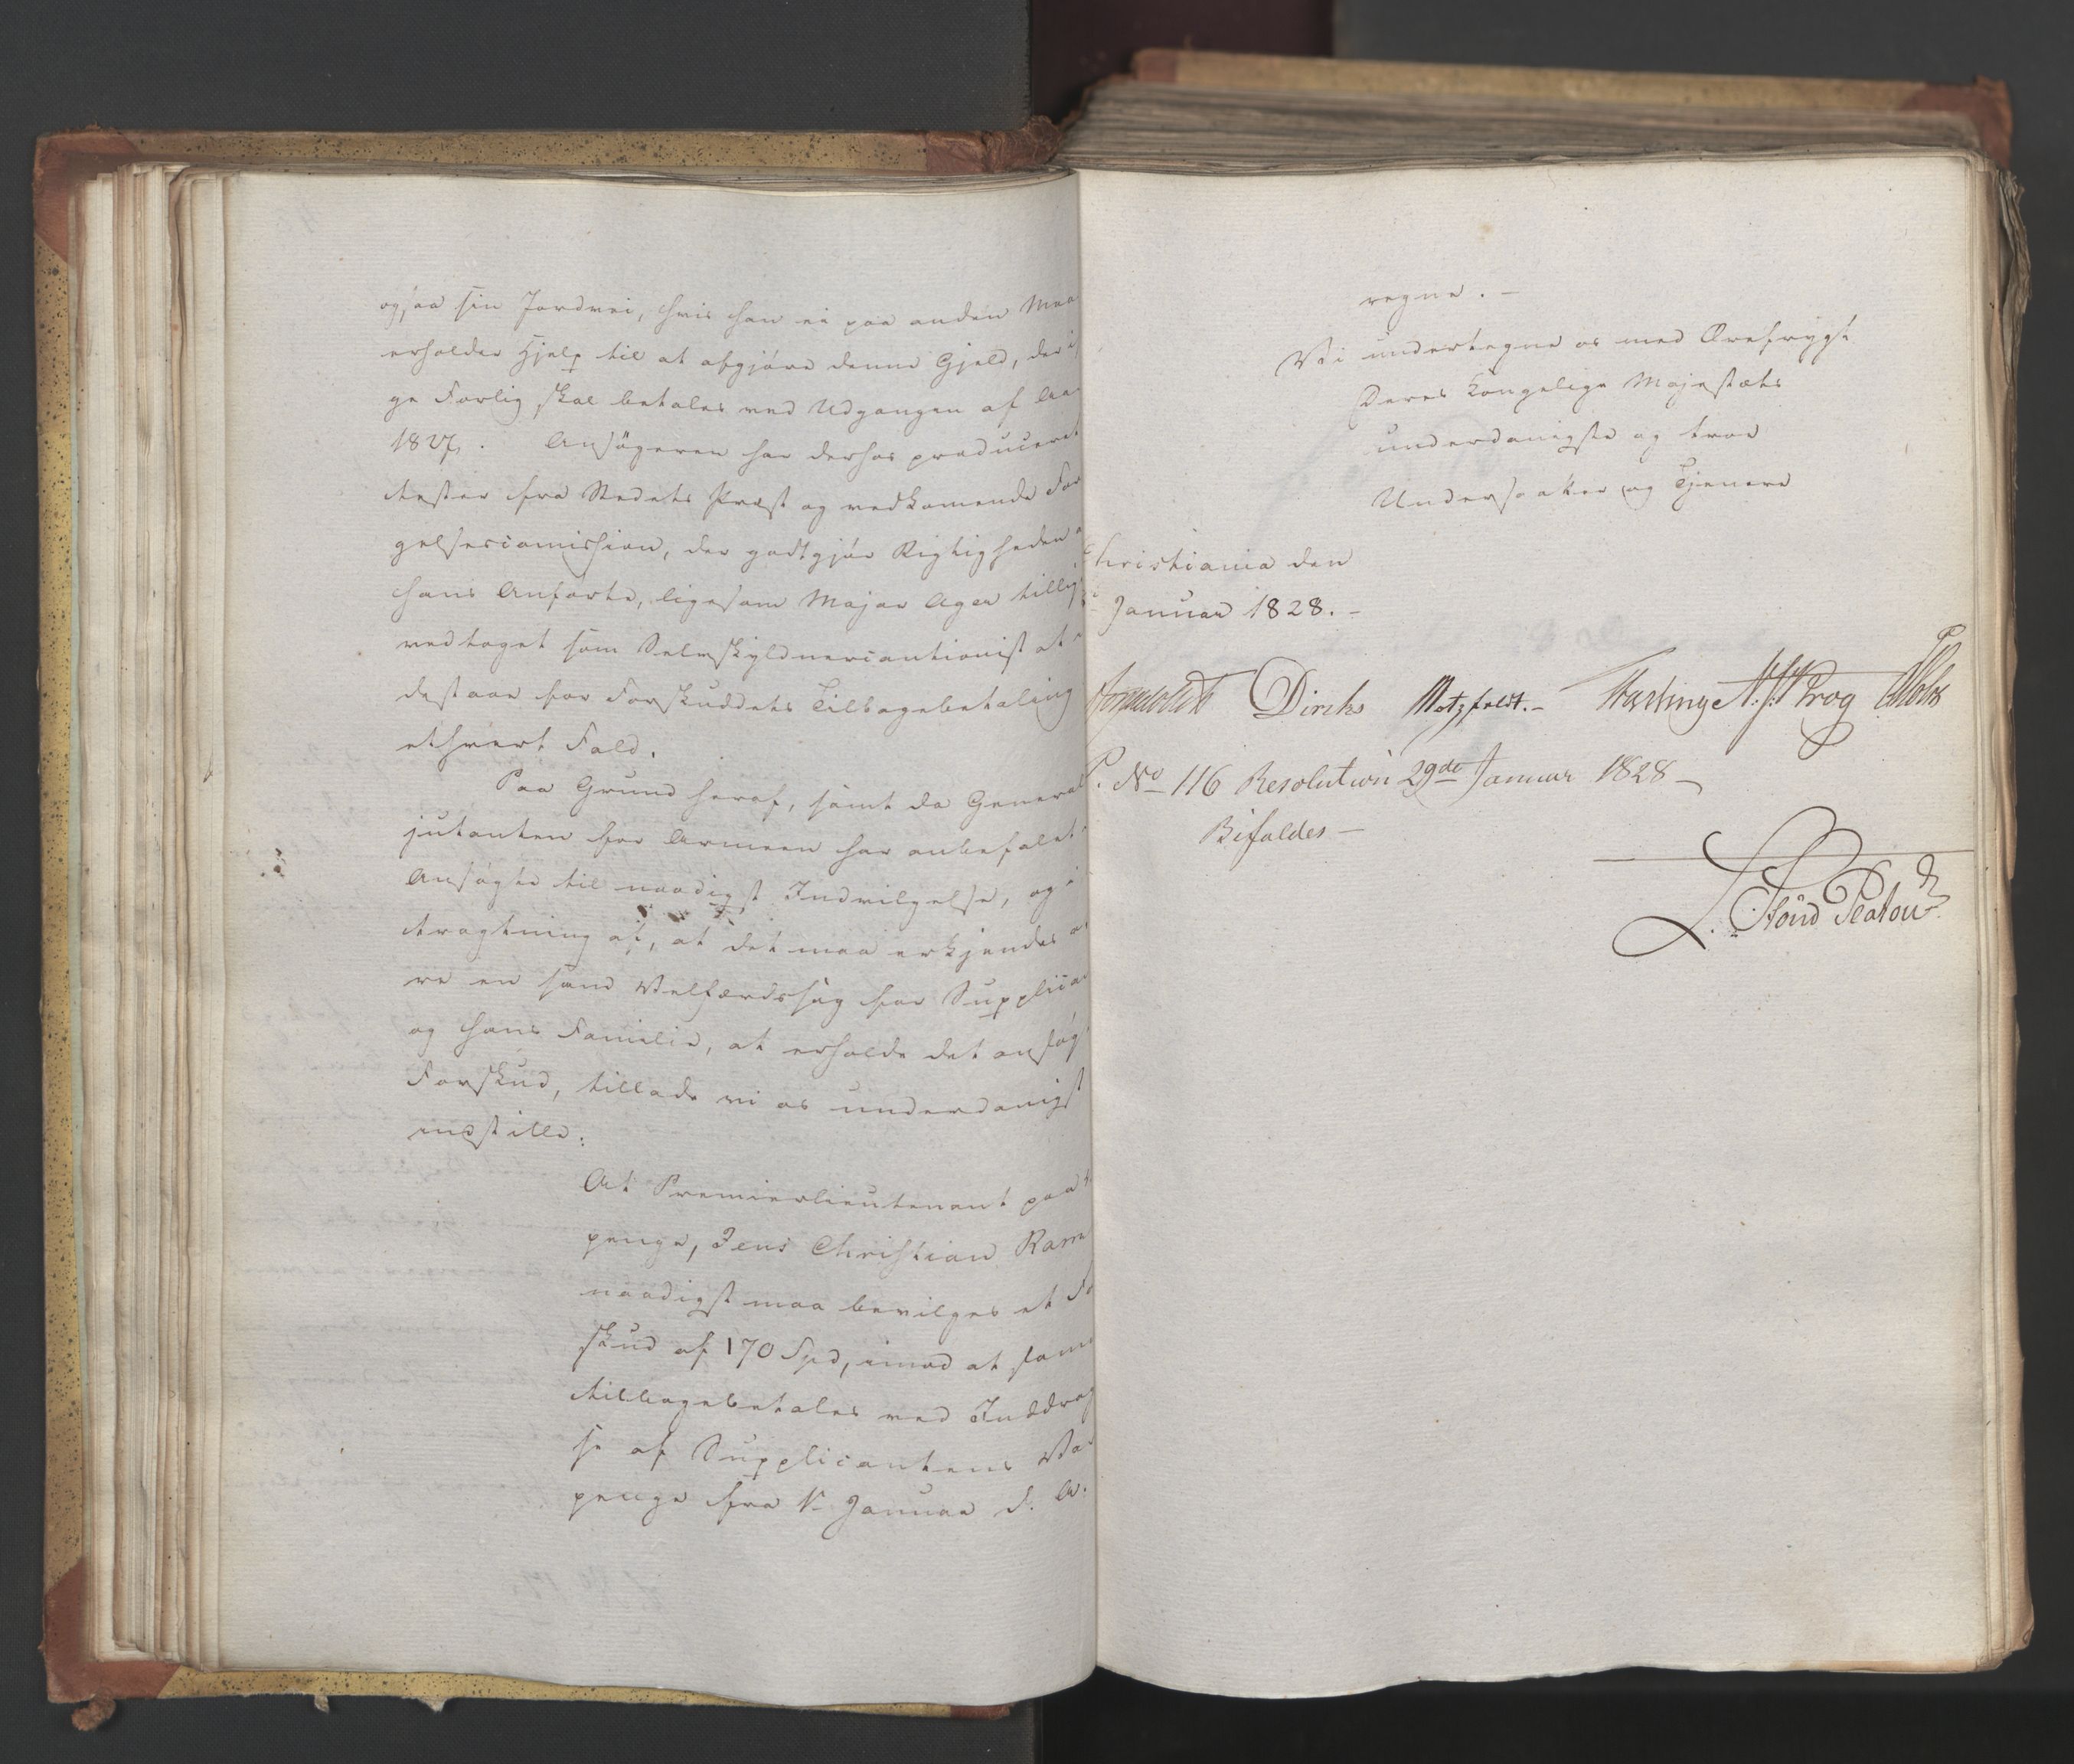 ogsaa sin Jordvei, hvis han ei paa anden Maa
erholder Hjelp til at afgjøre denne Gjeld, der i
ge Forlig skal betales ved Udgangen af Aa
1827. Ansøgeren har derhos produceret
tester fra Stedets Præst og vedkomende For
gelsescomission, der godtgjør Rigtigheden a
hans Anførte, ligesom Major Ager tillig
vedtaget som Selvskyldnercautionist at
destaae for Forskuddets Tilbagebetaling
ethvert Fald.
Paa Grund heraf, samt da General
jutanten for Armeen har anbefalet
Ansøgte til naadigst Indvilgelse, og i
tragtning af, at det maa erkjendes a
re en sand Velfærdssag for Supplica
og hans Familie, at erholde det ansøg
Forskud, tillade vi os underdanigst
indstille:
At Premierlieutenant paa
penge, Jens Christian Ram
naadigst maa bevilges et Fo
skud af 170 Spd, imod at sam
tilbagebetales ved Inddrag
se af Supplicantens Va
penge fra 1 Januar d. A.
regne. –
Vi undertegne os med Ærefrygt
Deres Kongelige Majestæts
underdanigste og troe
Undersaatter og Tjenere
Christiania den
Januar 1828. –
Diriks Motzfeldt. – Krog
P. No 116 Resolution 29de Januar 1828 –
Bifaldes –